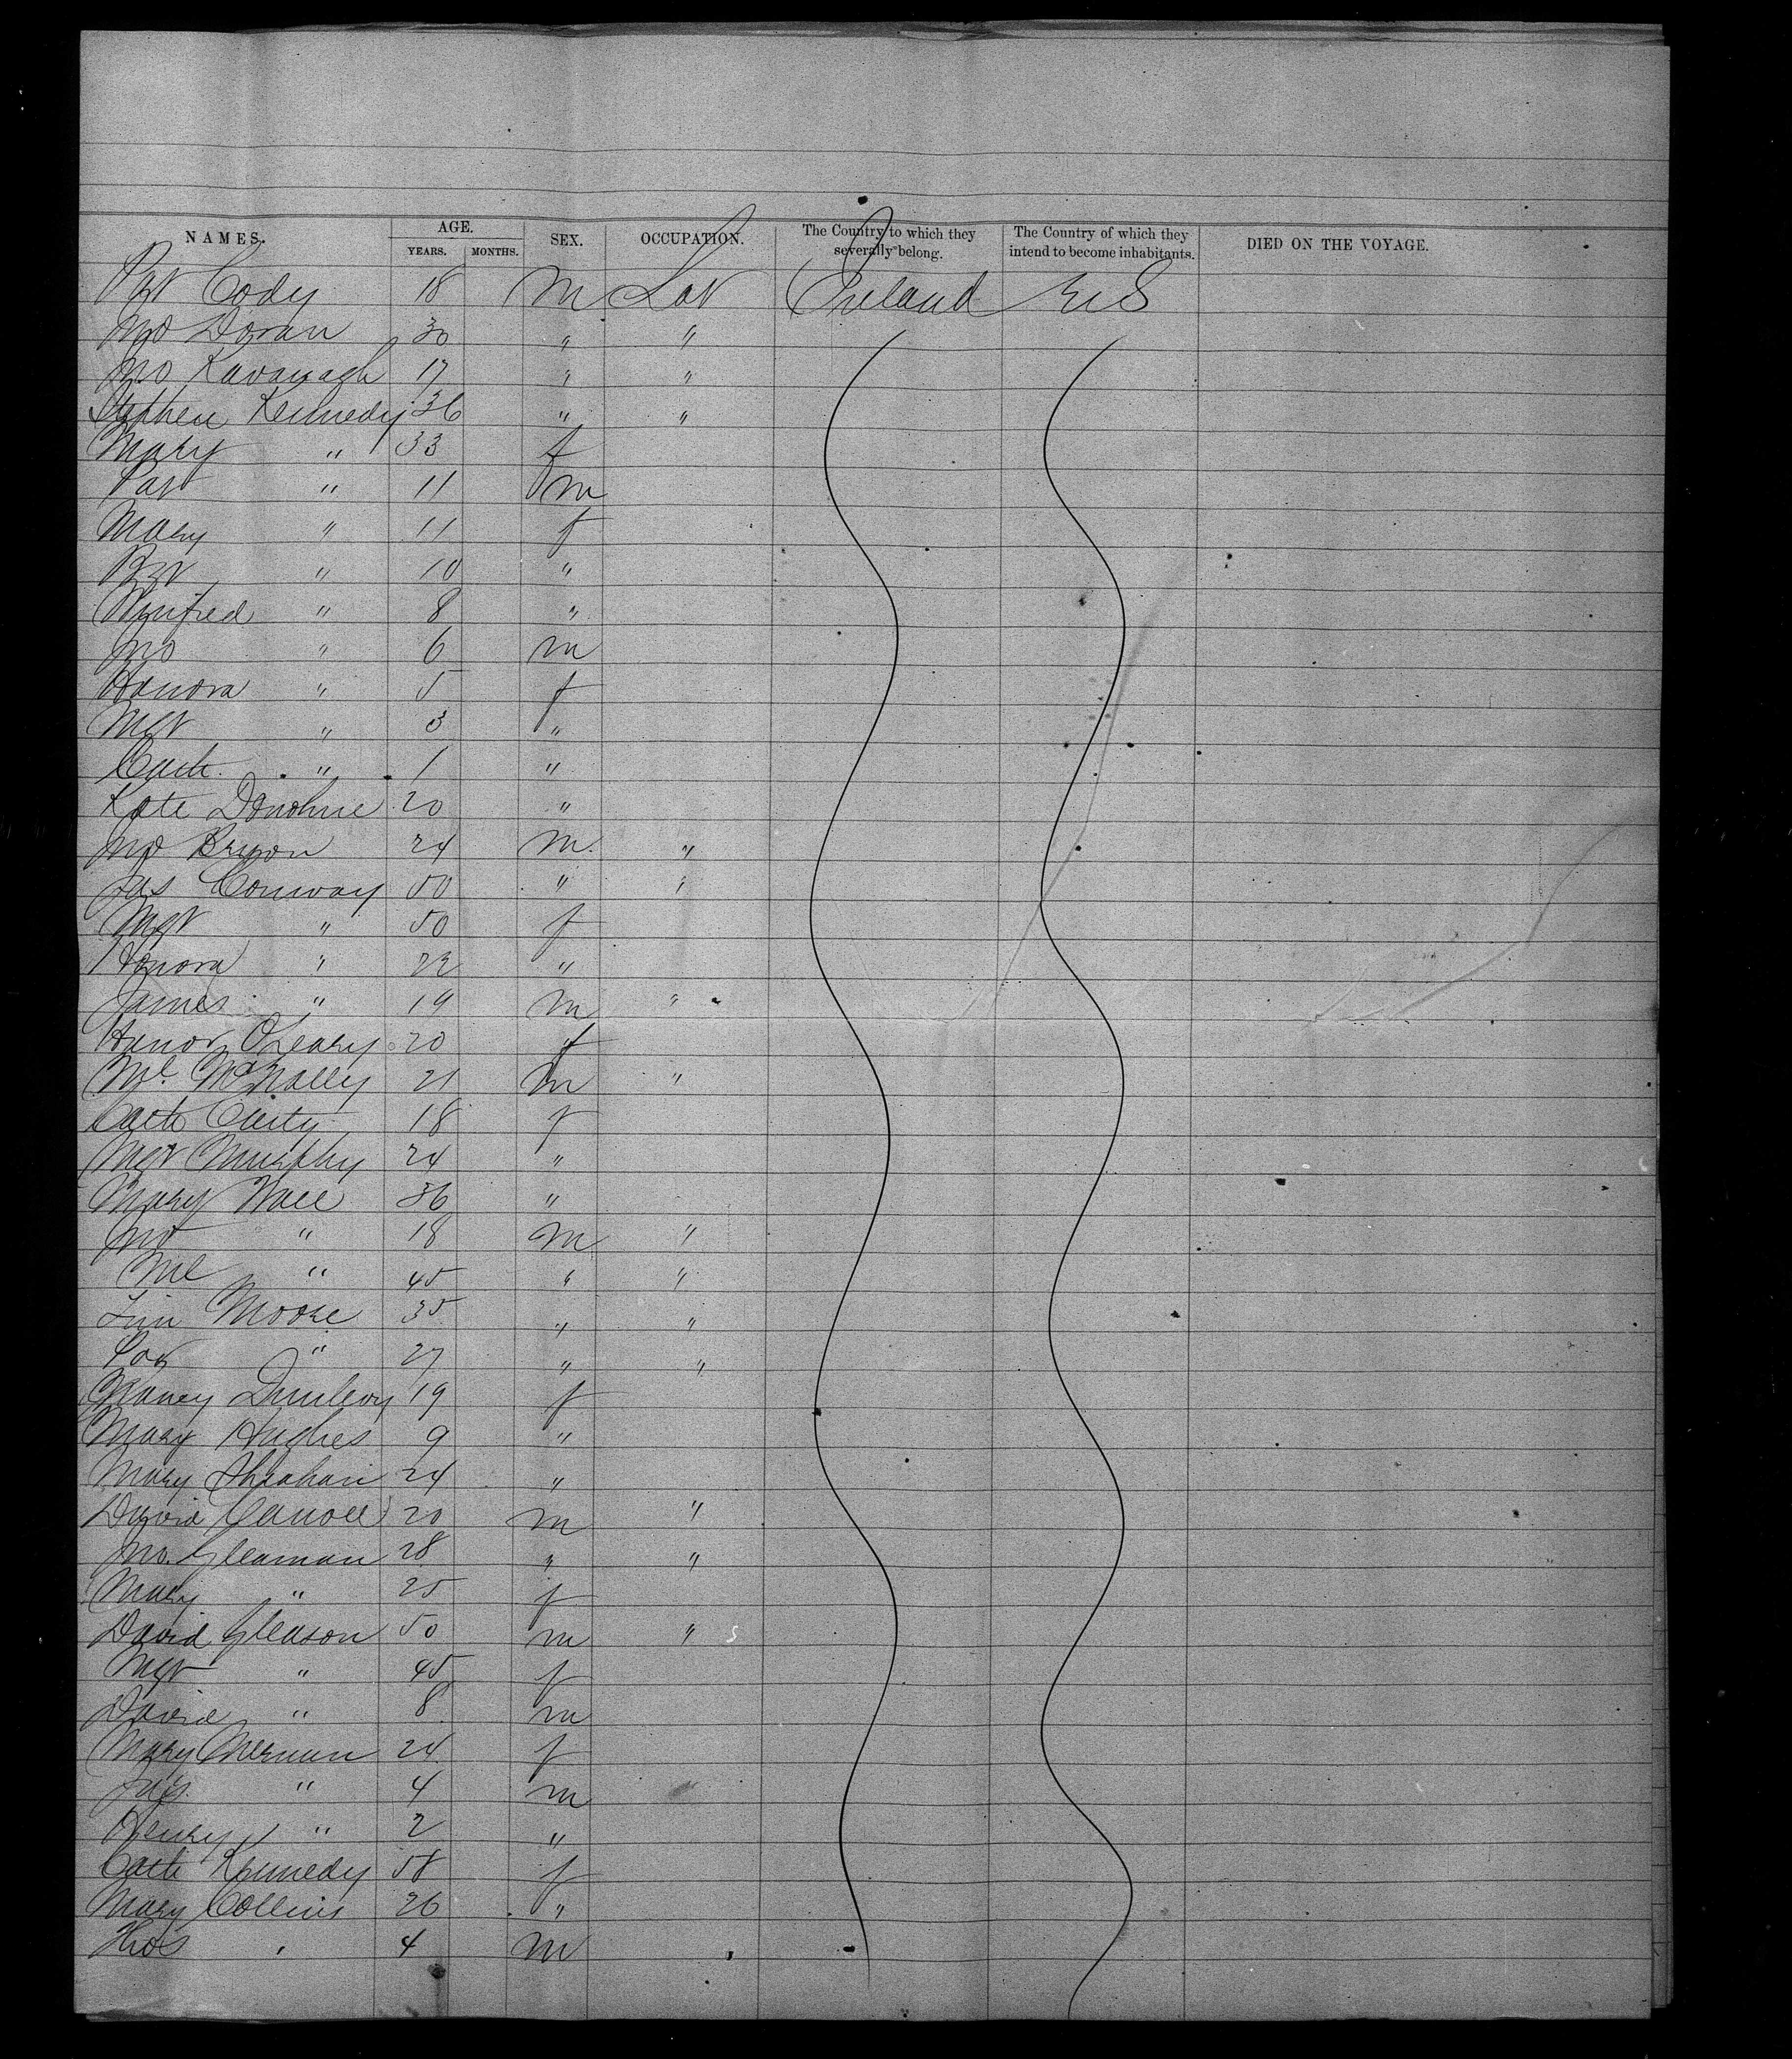 NAMES. AGE. YEARS. MONTHS. SEX. OCCUPATION. The Country to which they severally belong. The Country of which they intend to become inhabitants. DIED ON THE VOYAGE.
Pat Cody 18 m Lab Ireland U S
Jno Doran 30 " "
Jno Kavanagh 17 " "
Stephen Kennedy 36 " "
Mary " 33 f
Pat " 11 m
Mary " 11 f
" 10 "
Winifred " 8 "
Jno " 6 m
Hanora " 5 f
Mgt " 3 "
Cath " 1 "
Kate Donohue 20 "
Jno Bryon 24 m "
Jas Conway 50 " "
Mgt " 50 f
Honora " 22 "
James " 19 m "
Hanor OLeary 20 f
Ml. McNally 21 m "
Cath 18 f
Mgt Murphy 24 "
Mary Wall 36 "
Jno " 18 m "
Ml " 45 " "
Tim Moore 35 " "
Pat " 27 " "
Nancy Dunlevy 19 f
Mary Hughes 9 "
Mary 24 "
David Carroll 20 m "
Jno. Gleaman 28 " "
Mary " 25 f
David Gleason 50 m "
Mgt " 45 f
David " 8 m
Mary 24 f
Jas. " 4 m
Henry " 2 "
Cath Kennedy 58 f
Mary Collins 26 "
Thos " 4 m